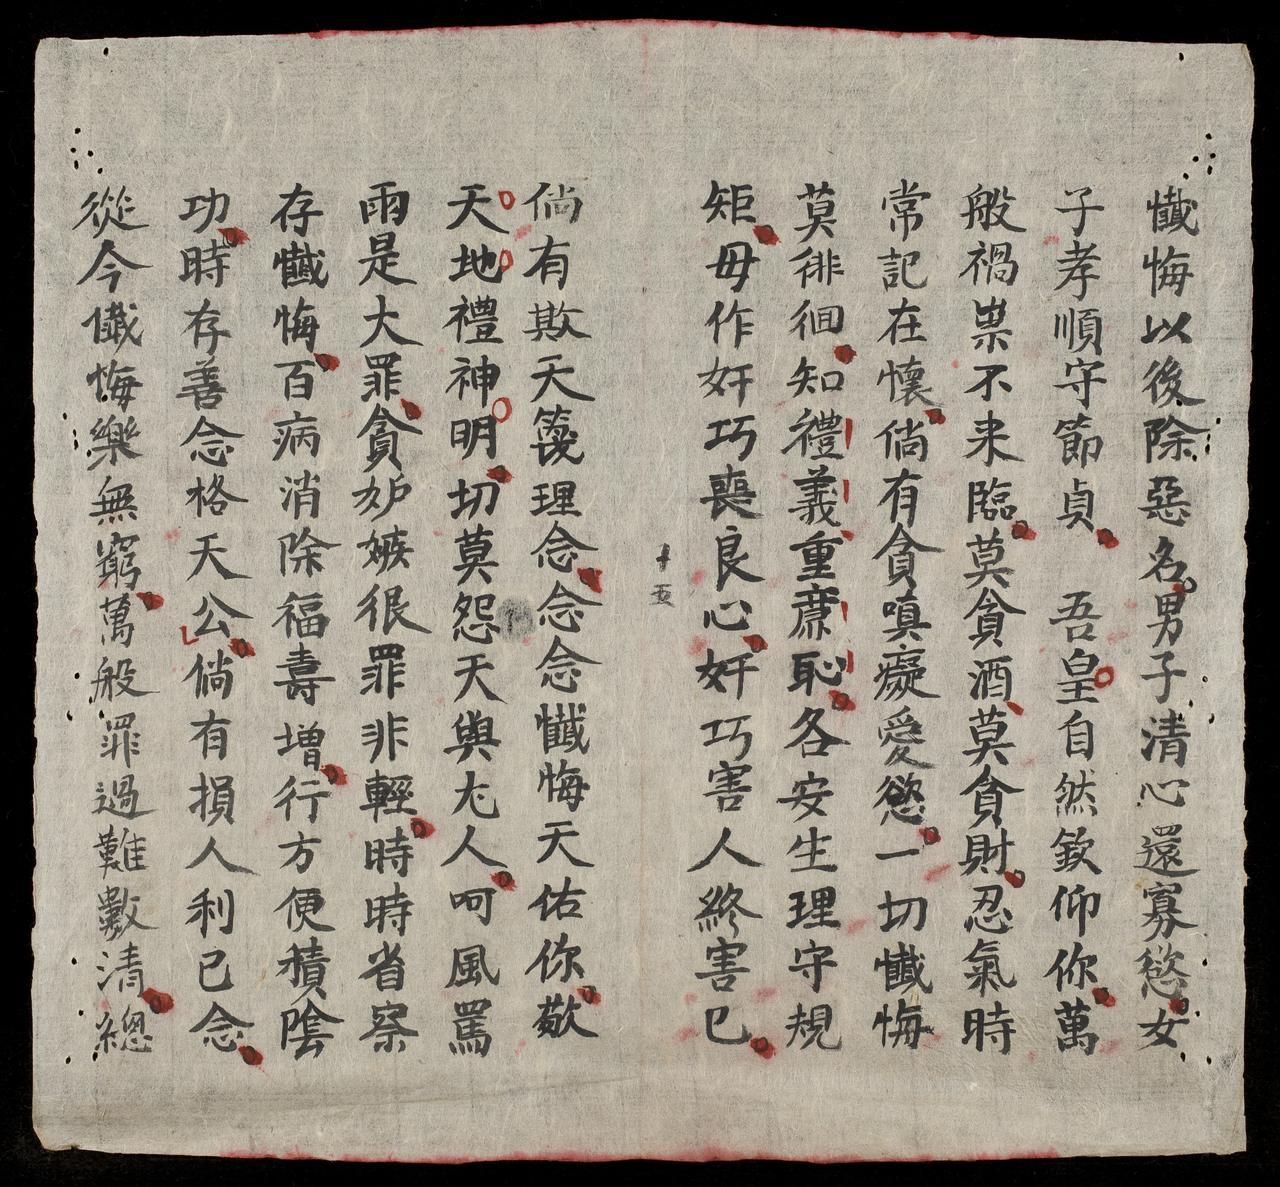 懺悔以後除惡名男子清心還寡慾女
子孝順守節貞　吾皇自然欽仰你萬
般禍祟不来臨莫貪酒莫貪財忍氣時
常記在懷倘有貪嗔癡愛慾一切懺悔
莫徘徊知禮義重廉恥各安生理守規
矩毋作奸巧喪良心奸巧害人終害已
十五
倘有欺天篾理念念念懺悔天佑你敬
天地禮神明切莫怨天與尤人呵風罵
雨是大罪貪妒嫉很罪非輕時時省察
存懺悔百病消除福壽增行方便積陰
功時存善念格天公倘有損人利已念
從今懺悔樂無窮萬般罪過難數清總